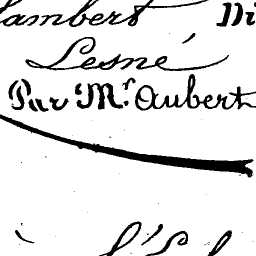 Lambert Di
Lesné
Par Mr. Aubert